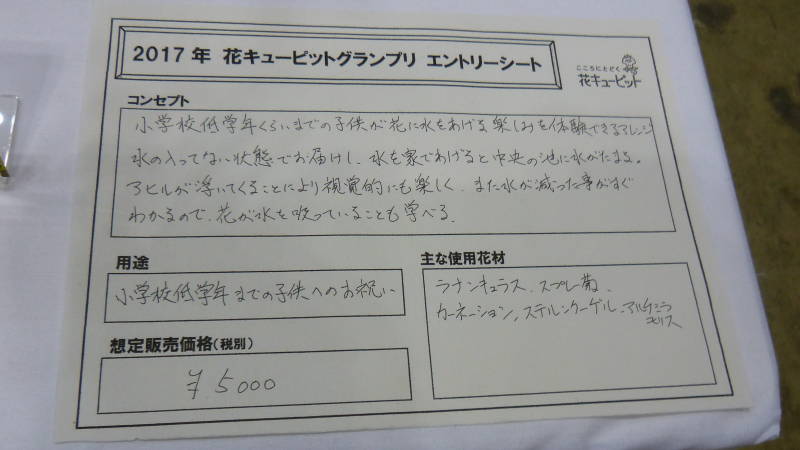 2017年 花キューピットグランプリ エントリーシート
こころにとどく
花キューピット
コンセプト
小学校低学年くらいまでの子供が花に水をあげる楽しみを体験できるアレンジ
水の入ってない状態でお届けし、水を家であげると中央の池に水がたまる。
アヒルが浮いてくることにより視覚的にも楽しく、また水が減った事がすぐ
わかるので、花が水を吸っていることも学べる。
用途
小学校低学年までの子供へのお祝い
想定販売価格(税別)
¥5000
主な使用花材
ラナンキュラス、スプレー菊、
カーネーション、ステルンクーゲル、アルケミラ
モリス